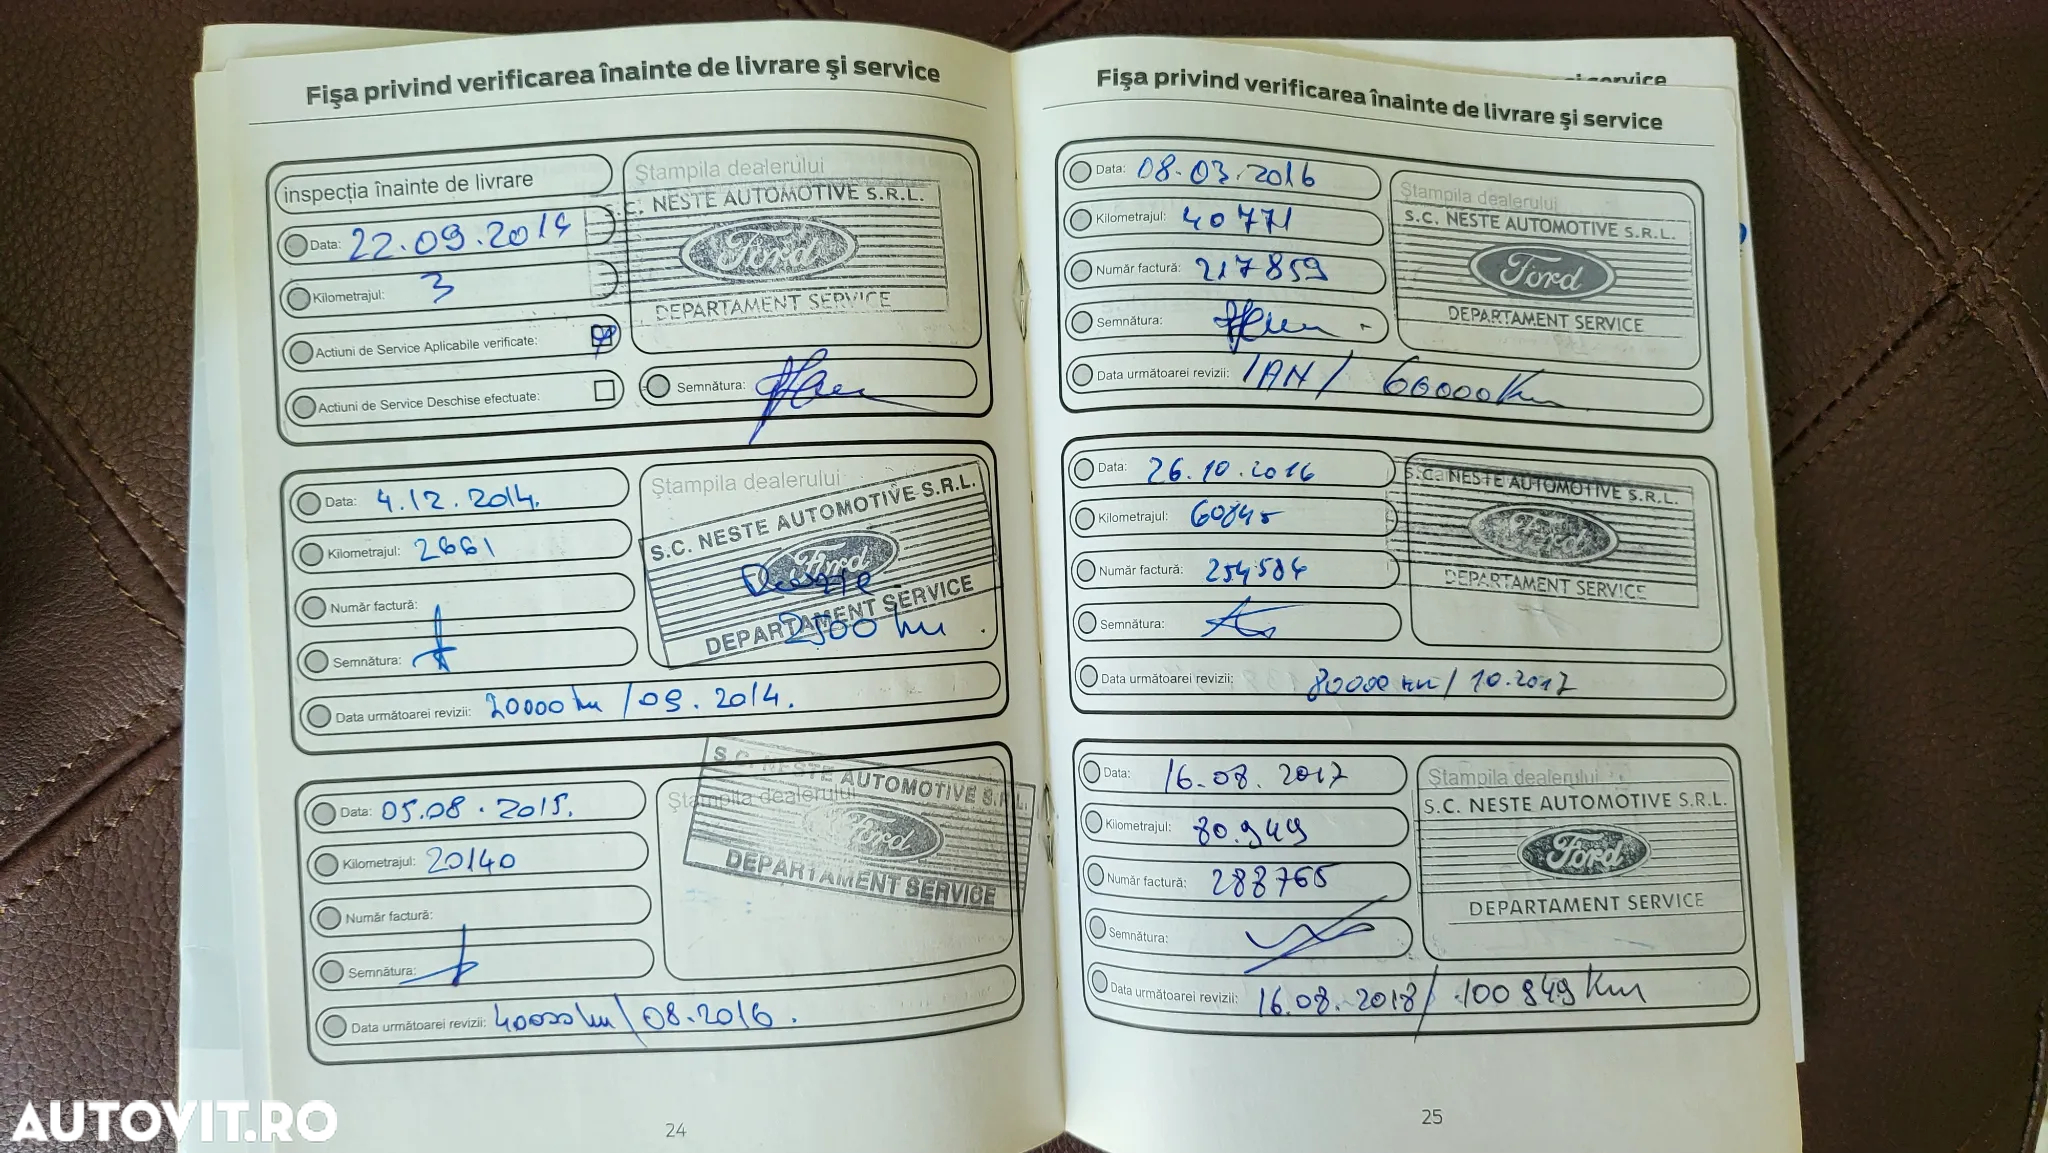 Fişa privind verificarea înainte de livrare şi service
inspecția înainte de livrare
Data: 22.09.2014
Kilometrajul: 3
Actiuni de Service Aplicabile verificate:
Actiuni de Service Deschise efectuate:
Ştampila dealerului
S.C. NESTE AUTOMOTIVE S.R.L.
Ford
DEPARTAMENT SERVICE
Semnătura:
Data: 4.12.2014.
Kilometrajul: 2661
Număr factură:
Semnătura:
Data următoarei revizii: 20000 km / 09.2014.
Ştampila dealerului
S.C. NESTE AUTOMOTIVE S.R.L.
Ford
DEPARTAMENT SERVICE
2500 km.
Data: 05.08.2015.
Kilometrajul: 20140
Număr factură:
Semnătura:
Data următoarei revizii: 40000 km / 08.2016.
Ştampila dealerului
S.C. NESTE AUTOMOTIVE S.R.L.
Ford
DEPARTAMENT SERVICE
24
şi service
Fişa privind verificarea înainte de livrare şi service
Data: 08.03.2016
Kilometrajul: 40771
Număr factură: 217859
Semnătura:
Data următoarei revizii: 1AN / 60000 Km
Ştampila dealerului
S.C. NESTE AUTOMOTIVE S.R.L.
Ford
DEPARTAMENT SERVICE
Data: 26.10.2016
Kilometrajul: 60845
Număr factură: 254584
Semnătura:
Data următoarei revizii: 80000 km / 10.2017
S.C. NESTE AUTOMOTIVE S.R.L.
Ford
DEPARTAMENT SERVICE
Data: 16.08.2017
Kilometrajul: 80.949
Număr factură: 288765
Semnătura:
Data următoarei revizii: 16.08.2018 / 100949 Km
Ştampila dealerului
S.C. NESTE AUTOMOTIVE S.R.L.
Ford
DEPARTAMENT SERVICE
25
AUTOVIT.RO